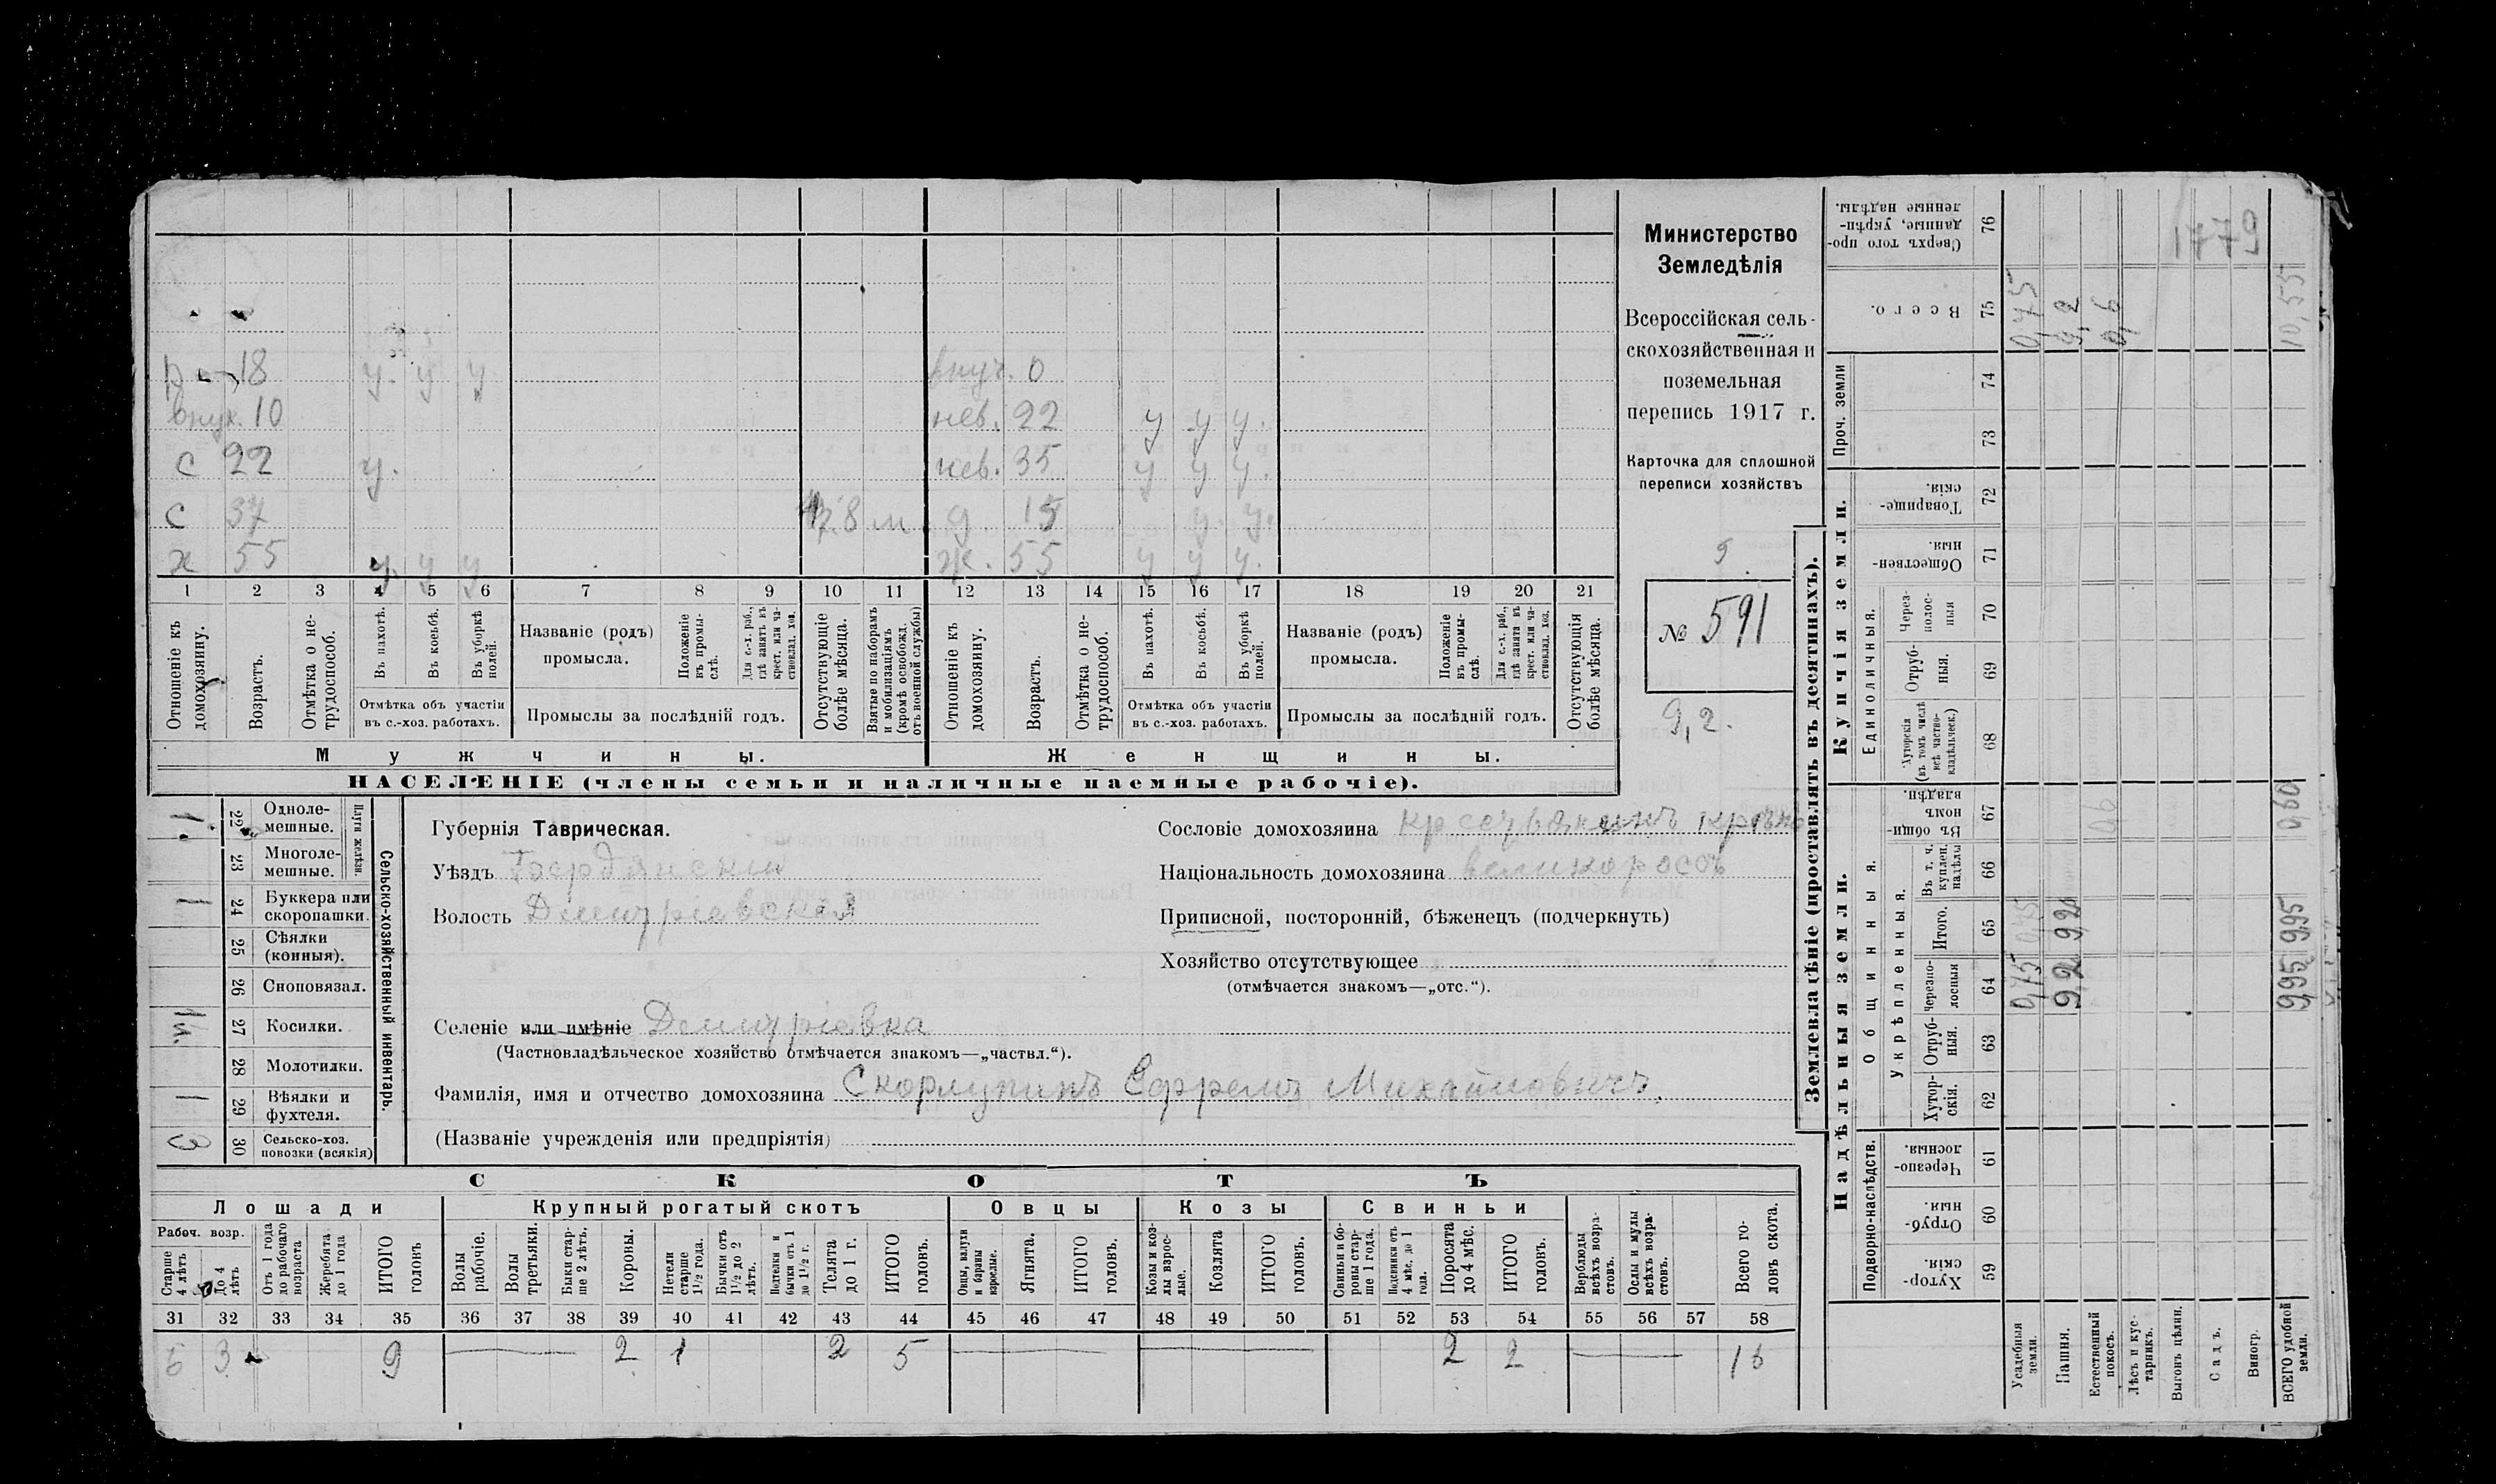 р 18 у. у у внуч. 0
внук. 10 нев. 22 у у у.
с 22 у. нев. 35 у у у.
с 37 8 м д. 15 у. у.
х 55 у. у у ж. 55 у у у.
1 2 3 4 5 6 7 8 9 10 11 12 13 14 15 16 17 18 19 20 21
Отношеніе къ домохозяину.
Возрастъ.
Отмѣтка о нетрудоспособ.
Въ пахотѣ.
Въ косьбѣ.
Въ уборкѣ полей.
Отмѣтка объ участіи
въ с.-хоз. работахъ.
Названіе (родъ)
промысла.
Положеніе въ промыслѣ.
Для с.-х. раб., гдѣ занятъ въ крест. или частновлад. хоз.
Промыслы за послѣдній годъ.
Отсутствующіе болѣе мѣсяца.
Взятые по наборамъ и мобилизаціямъ (кромѣ освобожд. отъ военной службы)
Отношеніе къ домохозяину.
Возрастъ.
Отмѣтка о нетрудоспособ.
Въ пахотѣ.
Въ косьбѣ.
Въ уборкѣ полей.
Отмѣтка объ участіи
въ с.-хоз. работахъ.
Названіе (родъ)
промысла.
Положеніе въ промыслѣ.
Для с.-х. раб., гдѣ занята въ крест. или частновлад. хоз.
Промыслы за послѣдній годъ.
Отсутствующія болѣе мѣсяца.
Мужчины. Женщины.
НАСЕЛЕНІЕ (члены семьи и наличные наемные рабочіе).
Министерство
Земледѣлія
Всероссійская сель-
скохозяйственная и
поземельная
перепись 1917 г.
Карточка для сплошной
переписи хозяйствъ
5
№ 591
9,2.
Сельско-хозяйственный инвентарь.
Плуги желѣзн.
1 22 Одноле-
мешные.
23 Многоле-
мешные.
1 24 Буккера или
скоропашки.
25 Сѣялки
(конныя).
26 Сноповязал.
27 Косилки.
28 Молотилки.
1 29 Вѣялки и
фухтеля.
3 30 Сельско-хоз.
повозки (всякія)
Губернія Таврическая.
Уѣздъ Бердянскій
Волость Димитріевская
Селеніе или имѣніе Димитріевка
(Частновладѣльческое хозяйство отмѣчается знакомъ—„частвл.“).
Фамилія, имя и отчество домохозяина Скорлупинъ Ефремъ Михайловичъ.
(Названіе учрежденія или предпріятія)
Сословіе домохозяина
Національность домохозяина великороссъ
Приписной, посторонній, бѣженецъ (подчеркнуть)
Хозяйство отсутствующее
(отмѣчается знакомъ—„отс.“).
СКОТЪ
Лошади Крупный рогатый скотъ Овцы Козы Свиньи
Рабоч. возр.
Старше 4 лѣтъ
До 4 лѣтъ
Отъ 1 года до рабочаго возраста
Жеребята до 1 года
ИТОГО головъ
Волы рабочіе.
Волы третьяки.
Быки старше 2 лѣтъ.
Коровы.
Нетели старше 1½ года.
Бычки отъ 1½ до 2 лѣтъ.
Подтелки и бычки отъ 1 до 1½ г.
Телята до 1 г.
ИТОГО головъ.
Овцы, валухи и бараны взрослые.
Ягнята.
ИТОГО головъ.
Козы и козлы взрослые.
Козлята
ИТОГО головъ.
Свиньи и боровы старше 1 года.
Подсвинки отъ 4 мѣс. до 1 года.
Поросята до 4 мѣс.
ИТОГО головъ.
Верблюды всѣхъ возрастовъ.
Ослы и мулы всѣхъ возрастовъ.
Всего головъ скота.
31 32 33 34 35 36 37 38 39 40 41 42 43 44 45 46 47 48 49 50 51 52 53 54 55 56 57 58
6 3 9 2 1 2 5 2 2 16
Землевладѣніе (проставлять въ десятинахъ).
Надѣльныя земли. Купчія земли. Проч. земли
Подворно-наслѣдств. Общинныя. Единоличныя.
Укрѣпленныя.
59 Хуторскія.
60 Отрубныя.
61 Черезполосныя
62 Хуторскія.
63 Отрубныя.
64 Черезполосныя
65 Итого.
66 Въ т. ч. куплен. надѣлы
67 Въ общинномъ владѣн.
68 Хуторскія (въ томъ числѣ всѣ частновладѣльческ.)
69 Отрубныя.
70 Черезполосныя
71 Общественныя.
72 Товарищескія.
73
74
75 Всего.
76 Сверхъ того проданные, укрѣпленные надѣлы.
Усадебныя земли. 0,75 0,75 0,75
Пашня. 9,2 9,2 9,2
Естественный покосъ. 0,6 0,6
Лѣсъ и кустарникъ.
Выгонъ цѣлин.
Садъ.
Виногр.
ВСЕГО удобной земли. 9,95 9,95 0,60 10,55
1779